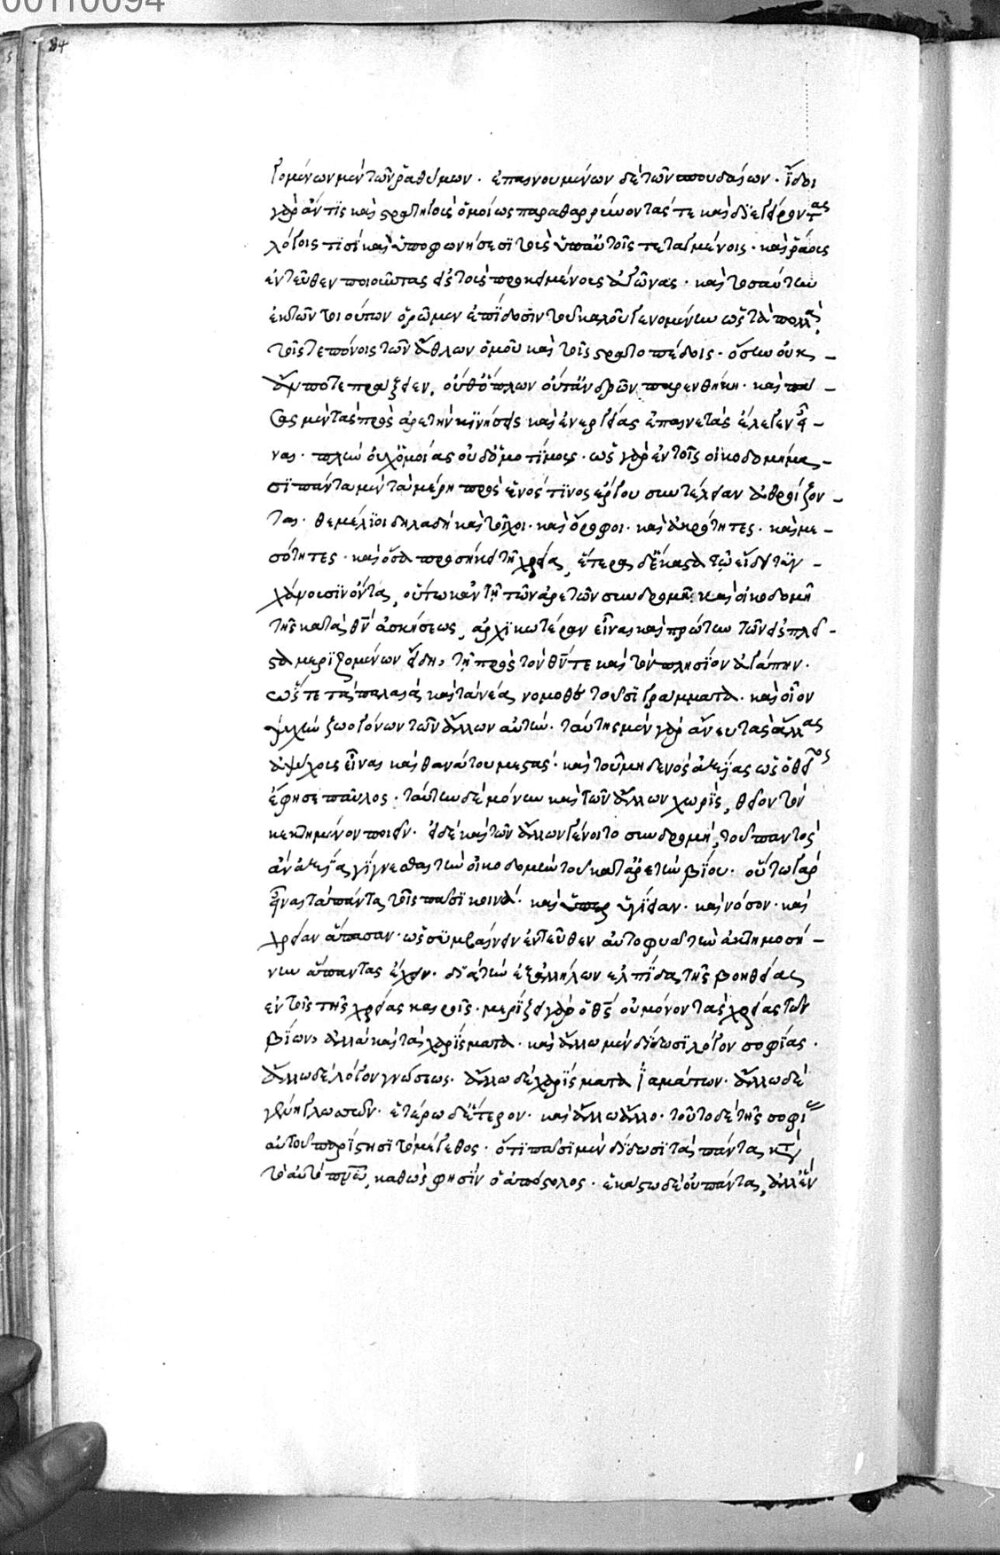 00110094
84
γομένων μὲν τῶν ῥαθύμων · ἐπαινουμένων δὲ τῶν σπουδαίων · ἴδοι
γὰρ ἄν τις καὶ στρατηγοὺς ὁμοίως παραθαρρύνοντάς τε καὶ διεγείροντας
λόγοις τισὶ καὶ ὑποφωνήσεσι τοὺς ὑπ' αὐτοῖς τεταγμένοις · καὶ ῥάους
ἐντεῦθεν ποιοῦντας εἰς τοὺς προκειμένους ἀγῶνας · καὶ τοσαύτην
ἐκ τῶν τοιούτων ὁρῶμεν ἐπίδοσιν τοῦ καλοῦ γενομένην ὡς τὰ πολλὰ,
τοῖς τε πόνοις τῶν ἄθλων ὁμοῦ καὶ τοῖς στρατοπέδοις · ὅσην οὐκ
ἄν ποτε πράξειεν, οὔθ' ὅπλων οὔτ' ἀνδρῶν παρενθήκη · καὶ πά
σας μὲν τὰς πρὸς ἀρετὴν κινήσεις καὶ ἐνεργείας ἐπαινετὰς ἔλεγεν εἶ
ναι · πλὴν οὐχ' ὁμοίας οὐδ' ὁμοτίμους · ὡς γὰρ ἐν τοῖς οἰκοδομήμα
σι πάντα μὲν τὰ μέρη πρὸς ἑνός τινος ἔργου συντέλειαν ἀθροίζον
ται · θεμέλιοι δηλαδὴ καὶ τοῖχοι · καὶ ὄροφοι · καὶ ἀκρότητες · καὶ με
σότητες · καὶ ὅσα προσήκει τῇ χρείᾳ, ἕτερα δ' ἕκαστα τῷ εἴδει τυγ
χάνουσιν ὄντα, οὕτω κἀν τῇ τῶν ἀρετῶν συνδρομῇ καὶ οἰκοδομῇ
τῆς κατὰ θν ἀσκήσεως, ἀρχικωτέραν εἶναι καὶ πρώτην τῶν εἰς πλεῖ
στα μεριζομένων εἴδη, τὴν πρὸς τὸν θν τε καὶ τὸν πλησίον ἀγάπην ·
ὥς τε τὰ παλαιὰ καὶ τὰ νέα νομοθετοῦσι γράμματα · καὶ οἷον
ψυχὴν ζωογόνων τῶν ἄλλων αὐτήν · ταύτης μὲν γὰρ ἄνευ τὰς ἄλλας
ἀψύχους εἶναι καὶ θανάτου μεστάς · καὶ τοῦ μηδενὸς ἀξίας ὡς ὁ θεῖος
ἔφησε παῦλος · ταύτην δὲ μόνην καὶ τῶν ἄλλων χωρίς, θεῖον τὸν
κεκτημένον ποιεῖν · εἰ δὲ καὶ τῶν ἄλλων γένοιτο συνδρομή, τοῦ παντὸς
ἂν ἀξία γίγνεσθαι τὴν οἰκοδομὴν τοῦ κατ' ἀρετὴν βίου · οὕτω γὰρ
εἶναι τὰ πάντα τοῖς πᾶσι κοινά · καὶ ὑγίειαν · καὶ νόσον · καὶ
χρείαν ἅπασαν · ὡς συμβαίνειν ἐντεῦθεν αὐτοφυᾶ τὴν ἀκτημοσύ
νην ἅπαντας ἔχειν · διὰ τὴν ἐξ ἀλλήλων ἐλπίδα τῆς βοηθείας
ἐν τοῖς τῆς χρείας καιροῖς · μερίζει γὰρ ὁ θς οὐ μόνον τὰς χρείας τῶν
βίων, ἀλλὰ καὶ τὰ χαρίσματα · καὶ ἄλλω μὲν δίδωσι λόγον σοφίας ·
ἄλλω δὲ λόγον γνώσεως · ἄλλω δὲ χαρίσματα ἰαμάτων · ἄλλω δὲ
γένη γλωσσῶν · ἑτέρω δ' ἕτερον · καὶ ἄλλω ἄλλο · τοῦτο δὲ τῆς σοφίας
αὐτοῦ παρίστησι τὸ μέγεθος · ὅτι πᾶσι μὲν δίδωσι τὰ πάντα κατὰ
τὸ αὐτὸ πνεῦμα, καθώς φησιν ὁ ἀπόστολος · ἑκάστω δὲ οὐ πάντα, ἀλλ' ἓν